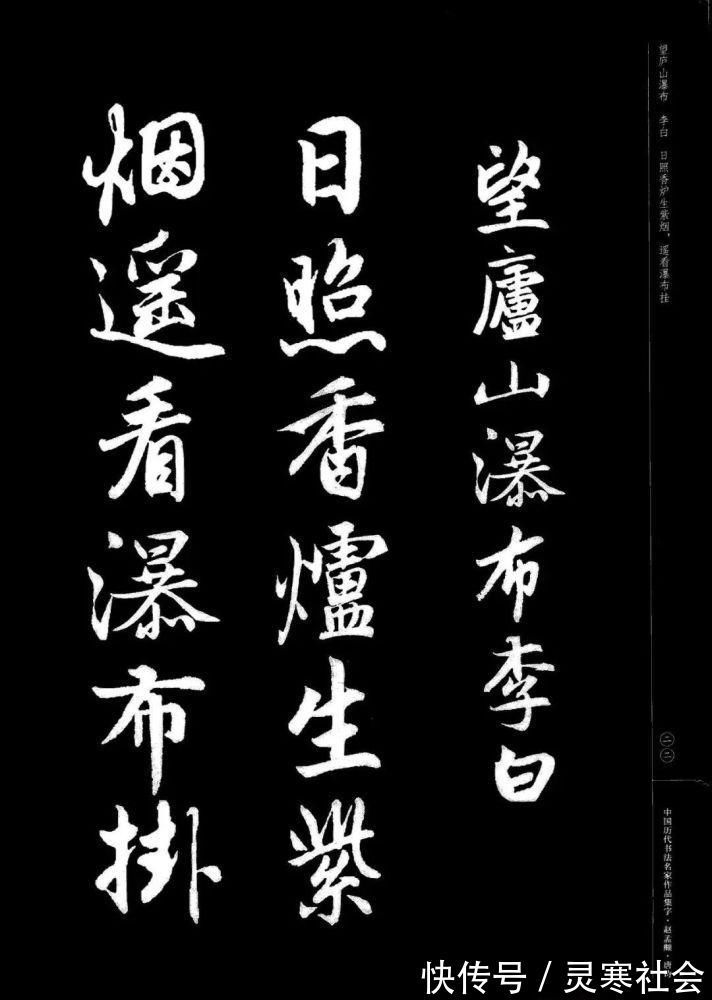 望廬山瀑布李白
日照香爐生紫
烟遥看瀑布掛
望庐山瀑布 李白 日照香炉生紫烟，遥看瀑布挂
二二
中国历代书法名家作品集字·赵孟頫·唐诗
快传号／灵寒社会